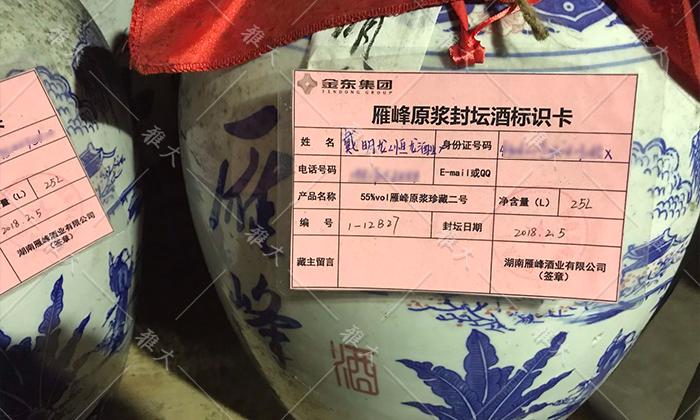 金东集团
JINDONG GROUP
雁峰原浆封坛酒标识卡
姓 名
身份证号码 X
电话号码 E-mail或QQ
产品名称 55%vol雁峰原浆珍藏二号 净含量（L） 25L
编 号 1-12B27 封坛日期 2018.2.5
藏主留言 湖南雁峰酒业有限公司
（签章）
雁峰
酒
量（L） 25L
2018.2.5
湖南雁峰酒业有限公司
（签章）
雅大